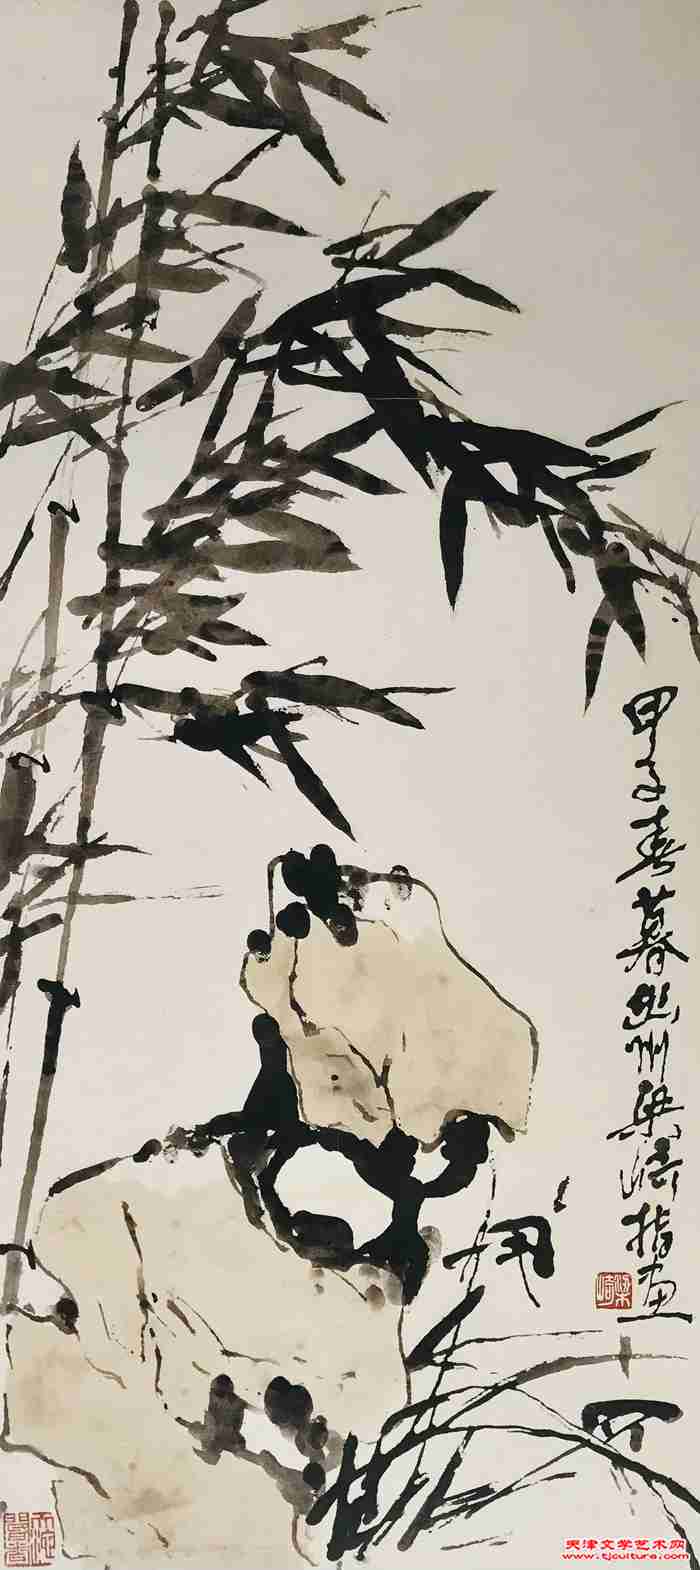 甲子春暮幽州梁崎指画
梁崎
天津文学艺术网
www.tjculture.com